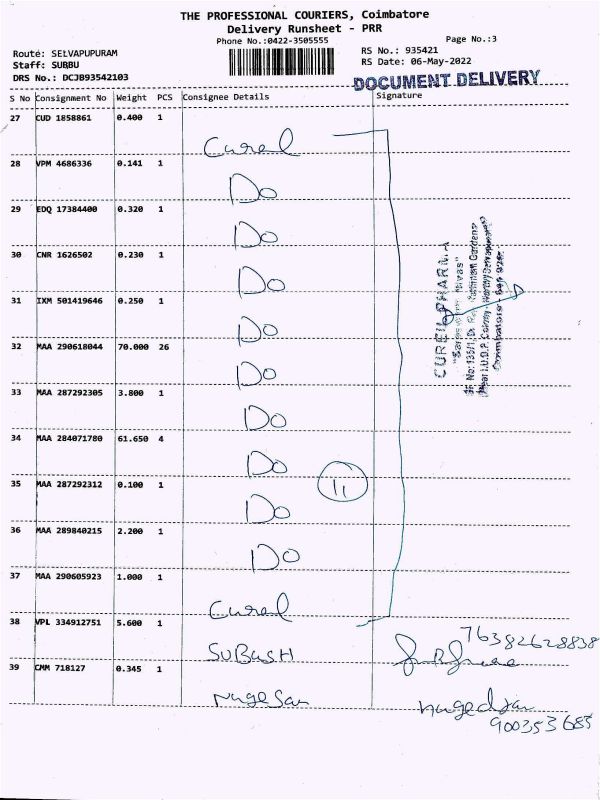 THE PROFESSIONAL COURIERS, Coimbatore
Delivery Runsheet - PRR
Phone No.:0422-3505555
Page No.:3
Route: SELVAPUPURAM
RS No.: 935421
Staff: SUBBU
RS Date: 06-May-2022
DRS No.: DCJB93542103
DOCUMENT DELIVERY
S No Consignment No Weight PCS Consignee Details Signature
27 CUD 1858861 0.400 1
Curel
28 VPM 4686336 0.141 1
Do
29 EDQ 17384400 0.320 1
Do
30 CNR 1626502 0.230 1
Do
31 IXM 501419646 0.250 1
Do
32 MAA 290618044 70.000 26
Do
33 MAA 287292305 3.800 1
Do
34 MAA 284071780 61.650 4
Do
35 MAA 287292312 0.100 1
Do
36 MAA 289840215 2.200 1
Do
37 MAA 290605923 1.000 1
Curel
38 VPL 334912751 5.600 1
SUBASH
39 CMM 718127 0.345 1
Nagesan
11
CUREIL PHARMA
76382628838
900353685